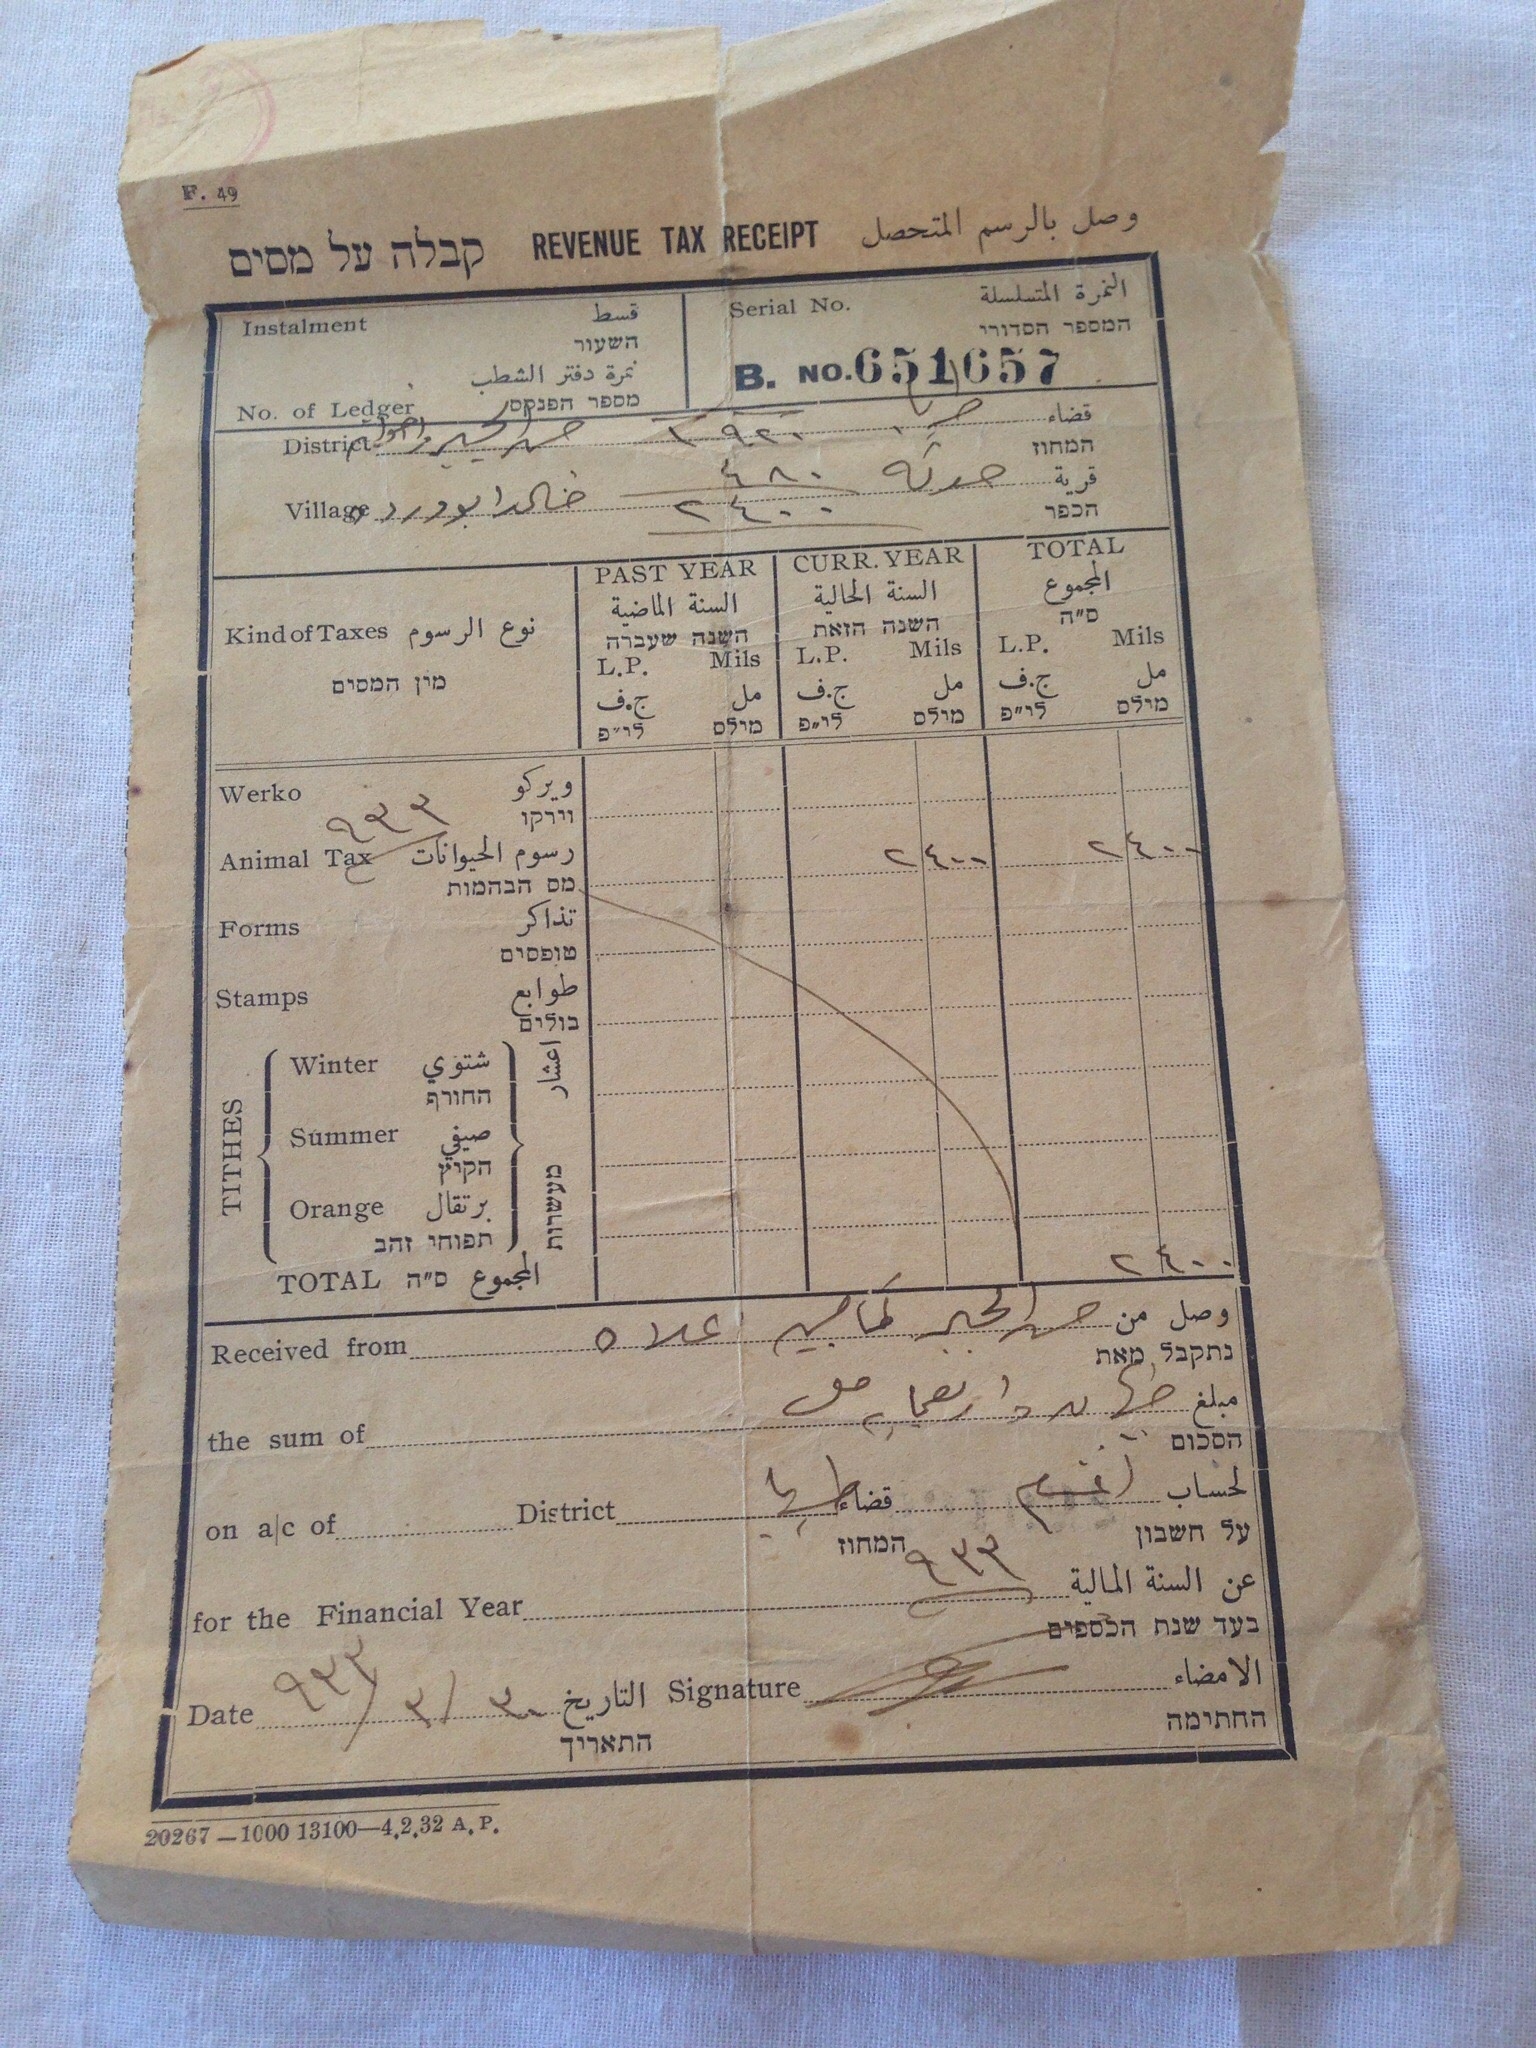 F. 49
קבלה על מסים REVENUE TAX RECEIPT وصل بالرسم المتحصل
Instalment قسط
השעור
نمرة دفتر الشطب
No. of Ledger מספר הפנקס
Serial No. النمرة المتسلسلة
המספר הסדורי
B. NO. 651657
District قضاء
המחוז
١٩٢٠
٤٨٠
Village قرية حدثه
הכפר
٢٤٠٠
Kind of Taxes نوع الرسوم
מין המסים
PAST YEAR CURR. YEAR TOTAL
السنة الماضية السنة الحالية المجموع
השנה שעברה השנה הזאת ס"ה
L.P. Mils L.P. Mils L.P. Mils
ج.ف مل ج.ف مل ج.ف مل
לי"פ מילס לי"פ מילס לי"פ מילס
Werko ويركو
וירקו
٩٣٣
Animal Tax رسوم الحيوانات ٢٤٠٠ ٢٤٠٠
מס הבהמות
Forms تذاكر
טופסים
Stamps طوابع
בולים
TITHES اعشار מעשרות
Winter شتوي
החורף
Summer صيفي
הקיץ
Orange برتقال
תפוחי זהב
TOTAL ס"ה المجموع ٢٤٠٠
Received from وصل من
נתקבל מאת
the sum of مبلغ
הסכום
on a/c of District قضاء طبريا لحساب اغنام
המחוז על חשבון
for the Financial Year ٩٣٣ عن السنة المالية
בעד שנת הכספים
Date ٣٠/٣/٩٣٣ التاريخ Signature الامضاء
התאריך החתימה
20267—1000 13100—4.2.32 A. P.